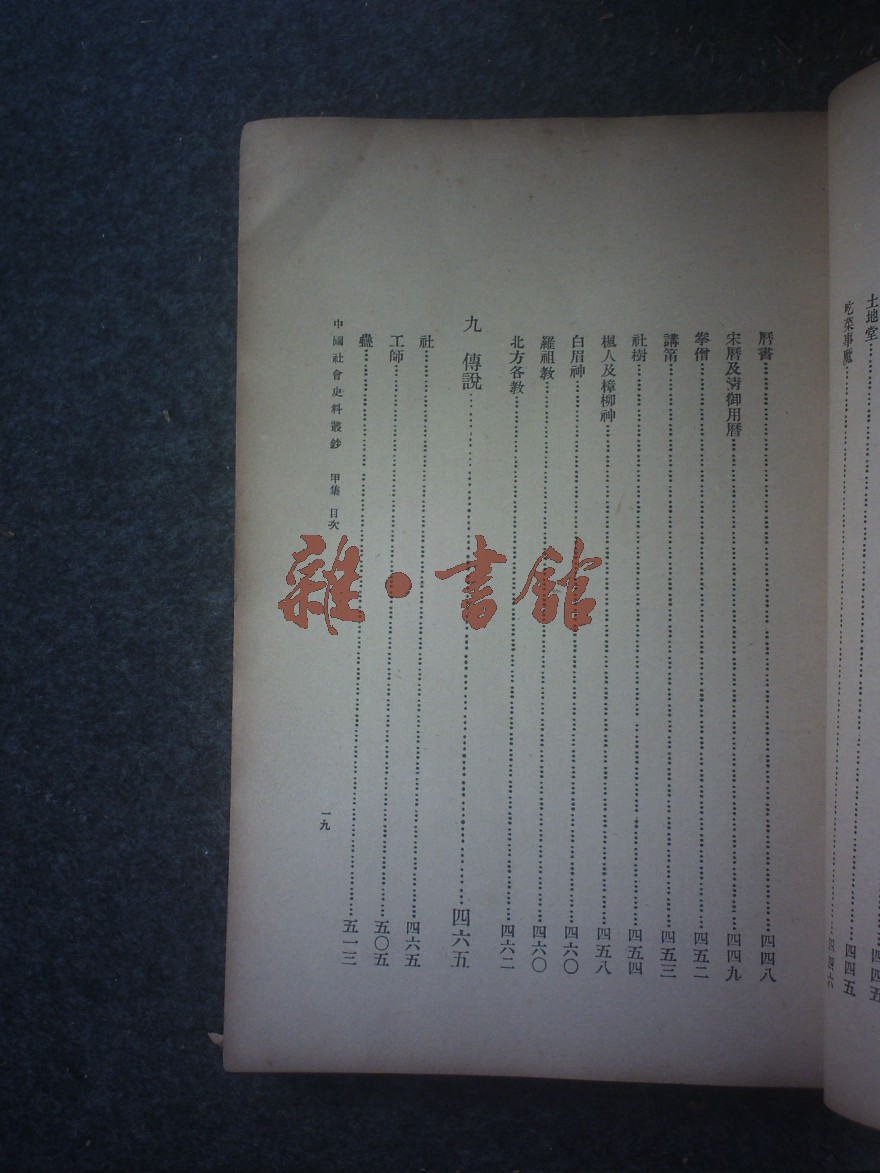 土地堂……………………四四五
吃菜事魔……………………四四五
四四六
曆書……………………四四八
宋曆及清御用曆……………………四四九
拳僧……………………四五二
講筲……………………四五三
社樹……………………四五四
楓人及樟柳神……………………四五八
白眉神……………………四六〇
羅祖教……………………四六〇
北方各教……………………四六二
九 傳說……………………四六五
社……………………四六五
工師……………………五〇五
蠱……………………五一三
中國社會史料叢鈔 甲集 目次
一九
雜·書館